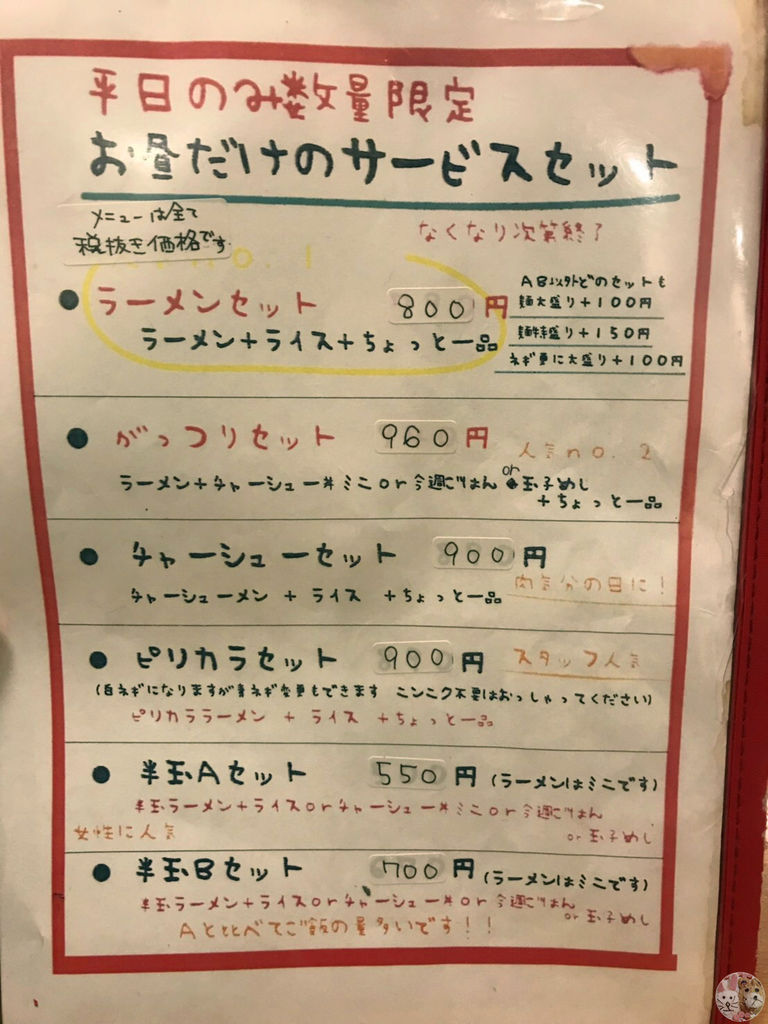 平日のみ数量限定
お昼だけのサービスセット
メニューは全て
税抜き価格です
なくなり次第終了
no. 1
●ラーメンセット 800円
ラーメン+ライス+ちょっと一品
AB以外どのセットも
麺大盛り+100円
麺特盛り+150円
ネギ更に大盛り+100円
●がっつりセット 960円
人気no. 2
ラーメン+チャーシュー丼ミニor今週ごはん or 玉子めし
+ちょっと一品
●チャーシューセット 900円
肉気分の日に!
チャーシューメン + ライス +ちょっと一品
●ピリカラセット 900円 スタッフ人気
(白ネギになりますが青ネギ変更もできます ニンニク不要はおっしゃってください)
ピリカララーメン + ライス +ちょっと一品
●半玉Aセット 550円(ラーメンはミニです)
半玉ラーメン+ライスorチャーシュー丼ミニor今週ごはん
or 玉子めし
女性に人気
●半玉Bセット 700円(ラーメンはミニです)
半玉ラーメン+ライスorチャーシュー丼or今週ごはん
or 玉子めし
Aと比べてご飯の量多いです!!